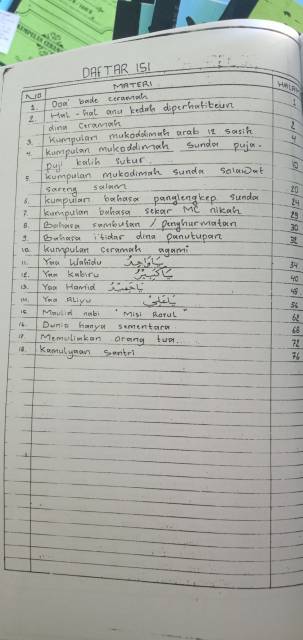 DAFTAR ISI
NO MATERI HALAM
1. Doa bade ceramah 1
2. Hal-hal anu kedah diperhatikeun
dina ceramah 2
3. Kumpulan mukoddimah arab 12 sasih 4
4. Kumpulan mukoddimah Sunda puja-
puji kalih sutur. 10
5. Kumpulan mukodimah sunda solawat
sareng salam 20
6. Kumpulan bahasa panglengkep sunda 24
7. Kumpulan bahasa sekar MC nikah 29
8. Bahasa sambutan / penghurmatan 30
9. Bahasa i'tidar dina panutupan 32
10. Kumpulan ceramah agami
11. Yaa Wahidu يَاوَاحِدُ 34
12. Yaa Kabiru يَاكَبِيْرُ 40
13. Yaa Hamid يَاحَمِيْدُ 48
14. Yaa Aliyu يَاعَلِيُّ 56
15 Maulid nabi " Misi Rasul " 62
16. Dunia hanya sementara 68
17. Memuliakan orang tua. 72
18. Kamulyaan Santri 76